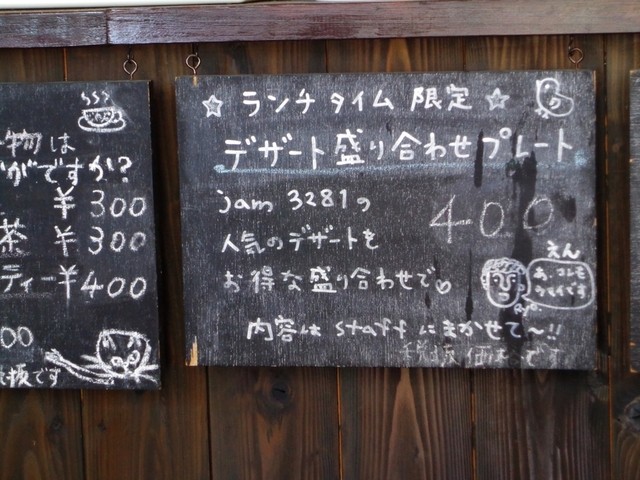 物は
がですか?
¥300
茶 ¥300
ティー¥400
00
税抜です
☆ランチタイム限定☆
デザート盛り合わせプレート
jam 3281の
人気のデザートを
お得な盛り合わせで♡
400
えん
あ、コレモ
ウマイです
内容は staff にまかせて〜!!
税抜価格です